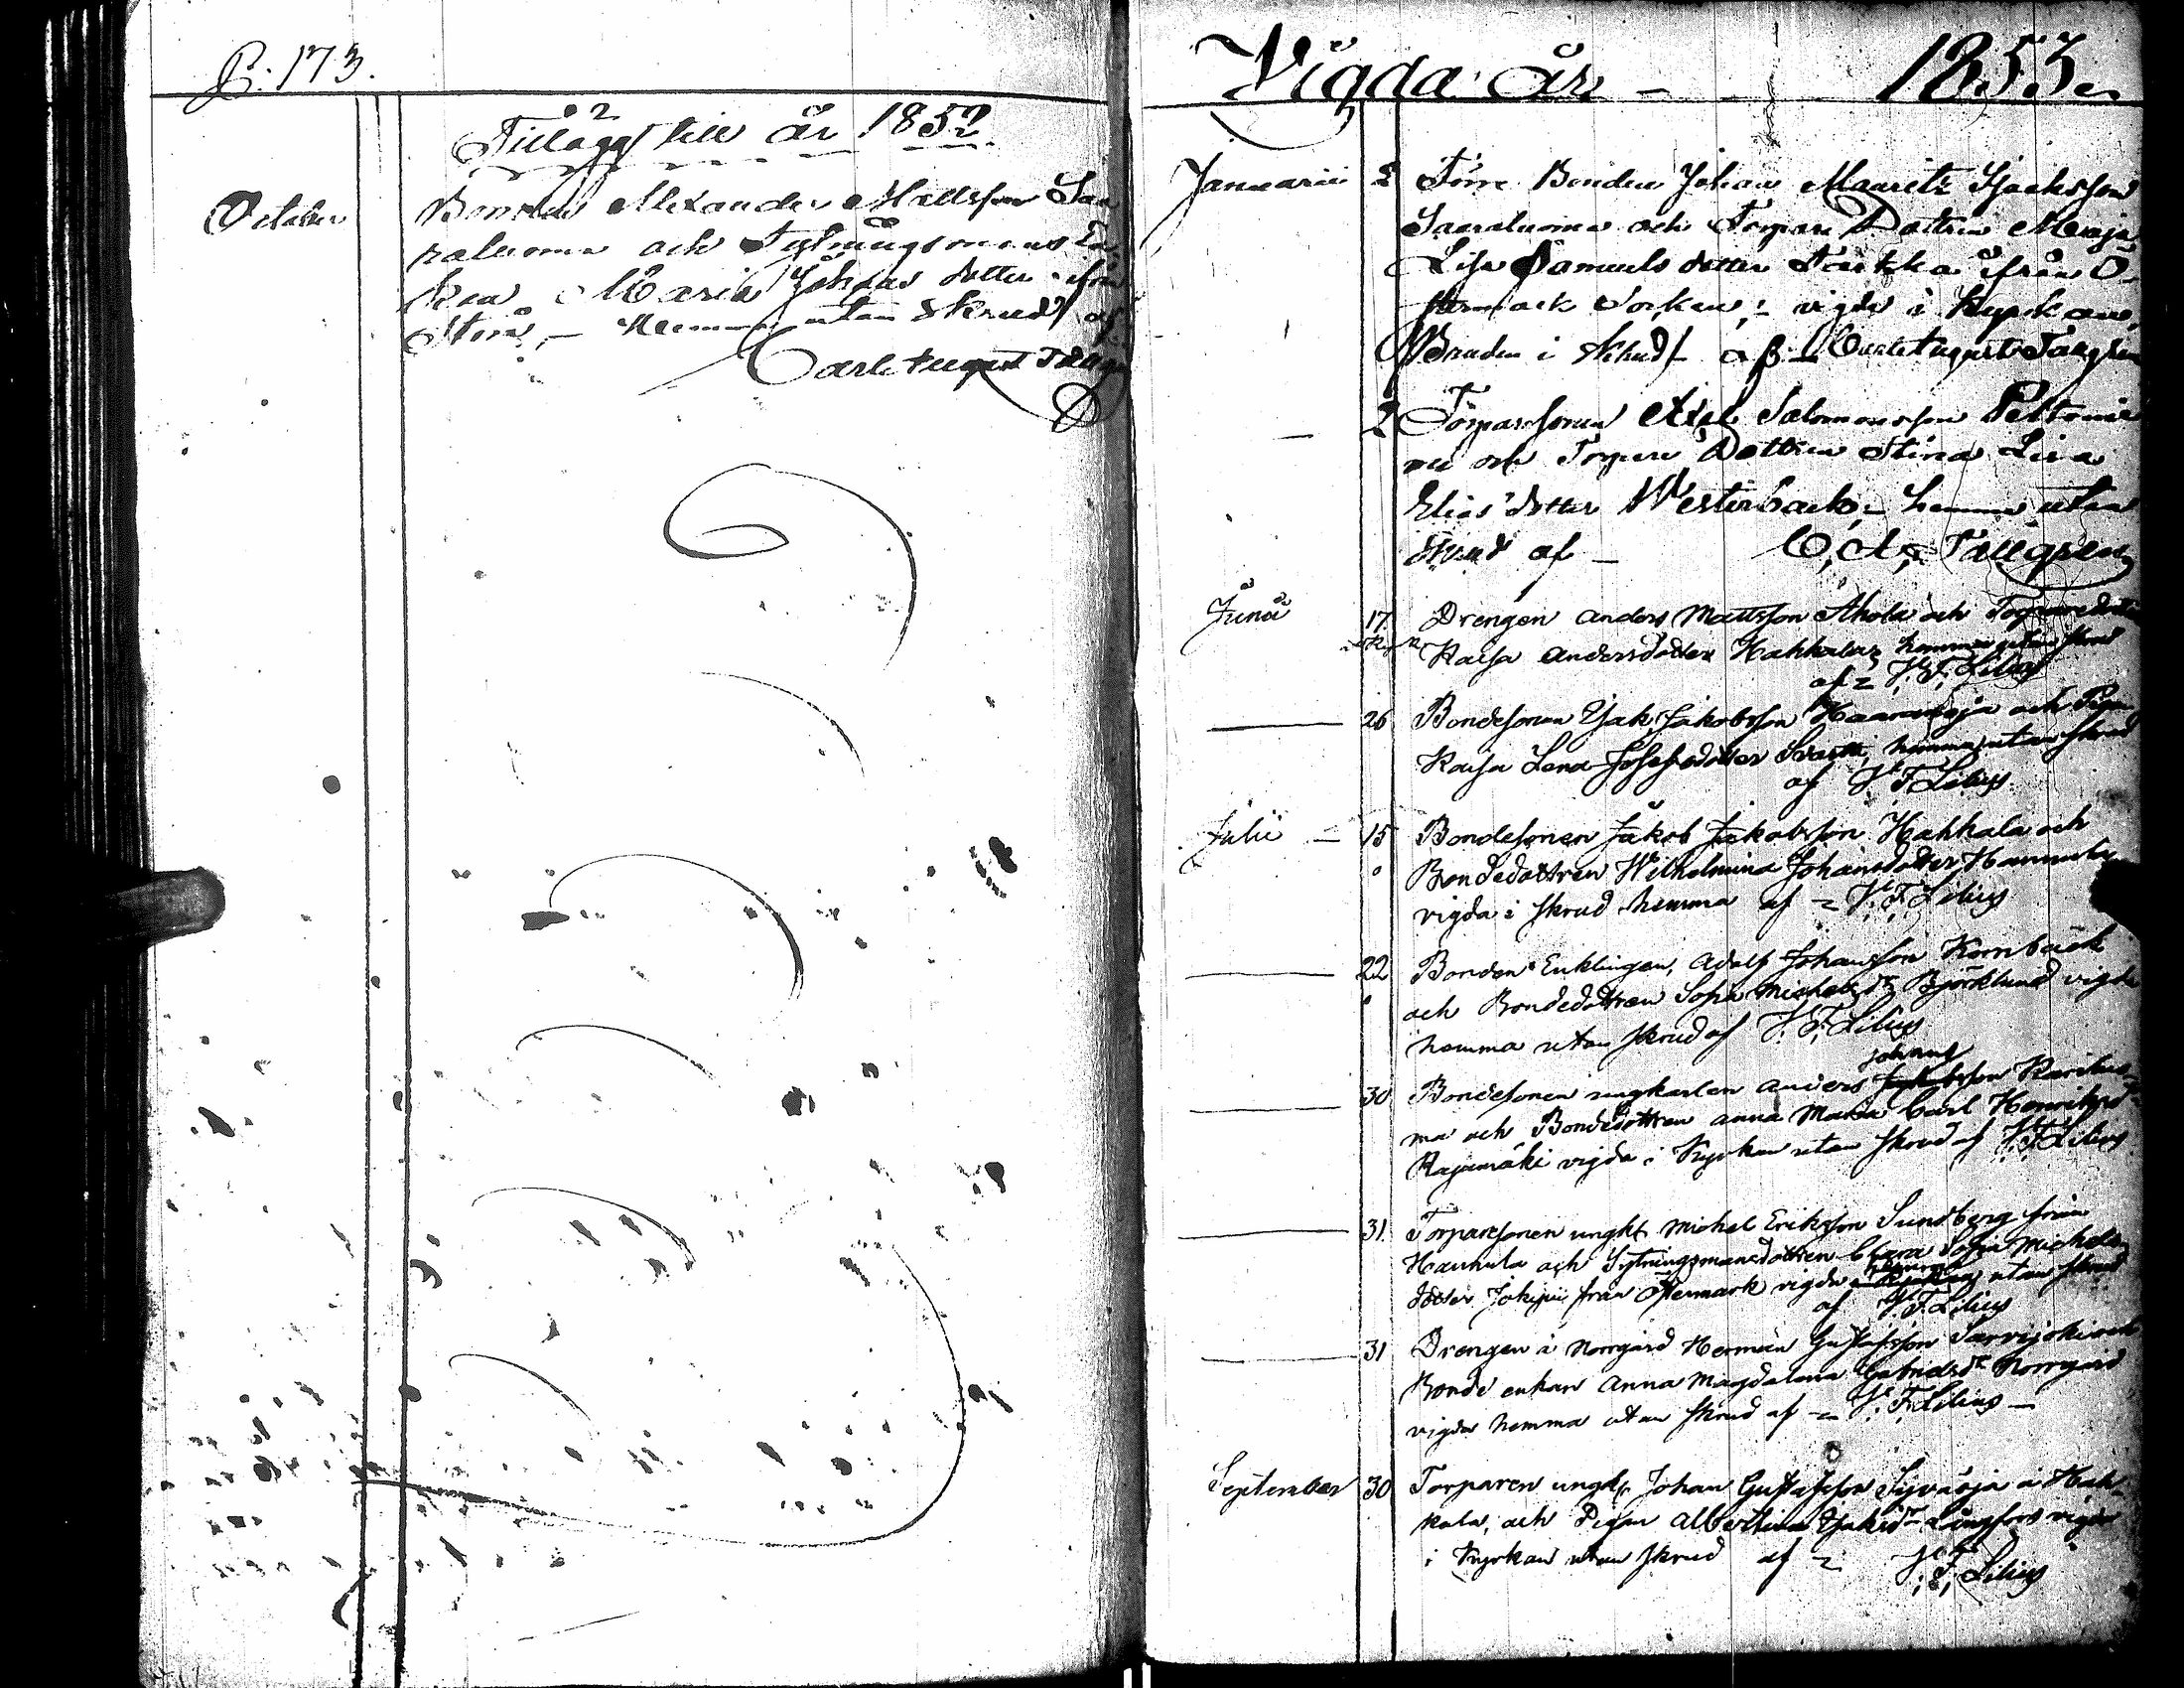 P. 173.
Tillägg till år 1852
October
Bonden Alexander Mattsson Saa
raluoma och Sytningsmans En
kan Maria Johans dotter ifrån
Storå, - Hemma utan Skrud af
Carl August Tallgren
Vigda år - 1853.
Januarii 2 Förre Bonden Johan Mauritz Isacksson
Saaraluoma och Torpare Dottren Maja
Lisa Samuels dotter ifrån Ö
stermark Socken, - vigde i Kyrkan,
Bruden i skrud, af - Carl August Tallgren
2 Torparesonen Axel Salomonsson Peltonie
mi och Torpare Dottren Stina Lisa
Elias dotter Westerback, - hemma utan
skrud af - C. A. Tallgren
Junii 17. Drengen Anders Mattsson Ahola och Torparedottren
Kajsa Andersdotter Hahkala, hemma utan skrud
af = V. F. Lilius
26 Bondesonen Isak Jakobsson och Pigan
Kaisa Lena Josefsdotter hemma utan skrud
af V. F. Lilius
Julii - 15 Bondesonen Jakob Jakobsson Hahkala och
Bondedottren Wilhelmina Johansdotter Hannula
vigda i skrud hemma af = V. F. Lilius
22 Bonden Enklingen, Adolf Johansson Kornback
och Bondedottren Sofia Michelsdr Björklund vigda
hemma utan skrud af V. F. Lilius
Johans
30 Bondesonen ungkarlen Anders son
ma och Bondedottren Anna Maria Carl Henriksdr
Rajamäki vigda i Kyrkan utan skrud af V. F. Lilius
31. Torparesonen ungk. Michel Eriksson Sundberg från
Hannula och Sytningsmansdottren Clara Sofia Michels
dotter Jokipii från Östermark vigda hemma utan skrud
af V. F. Lilius
31 Drengen å Norrgård Herman Gustafsson Sarvijoki och
Bonde enkan Anna Magdalena Gabrielsdr Norrgård
vigda hemma utan skrud af = V. F. Lilius -
September 30 Torparen ungk. Johan Gustafsson å Hah-
kala, och Pigan Albertina Isaksdr Långfors vigda
i Kyrkan utan skrud af = V. F. Lilius